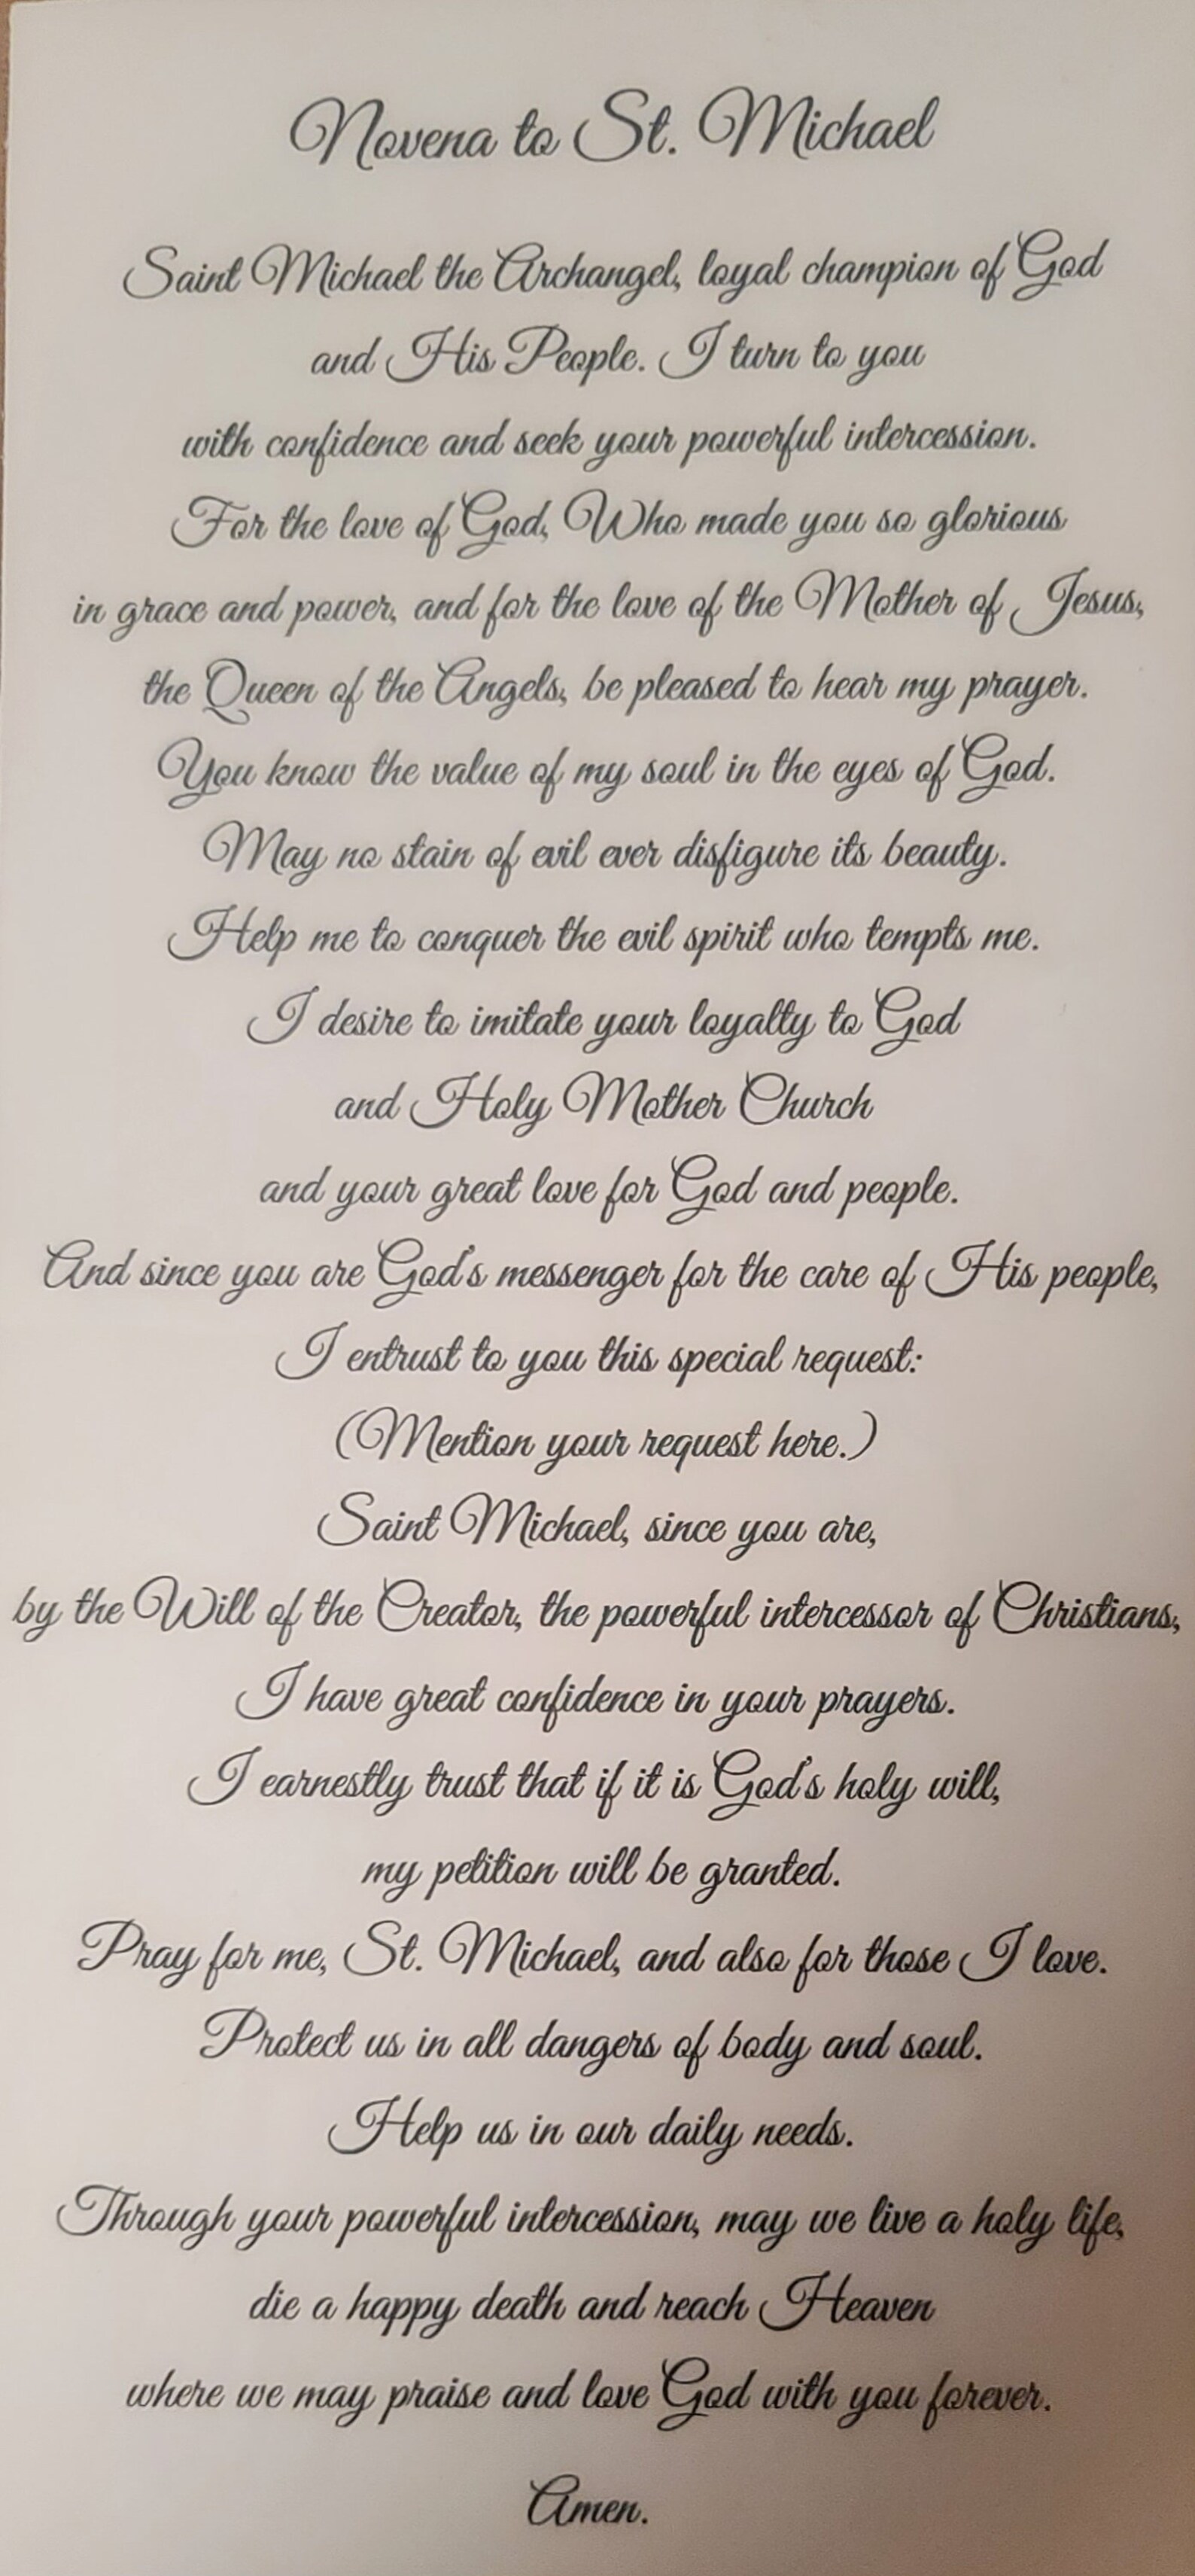 Novena to St. Michael
Saint Michael the Archangel, loyal champion of God
and His People. I turn to you
with confidence and seek your powerful intercession.
For the love of God, Who made you so glorious
in grace and power, and for the love of the Mother of Jesus,
the Queen of the Angels, be pleased to hear my prayer.
You know the value of my soul in the eyes of God.
May no stain of evil ever disfigure its beauty.
Help me to conquer the evil spirit who tempts me.
I desire to imitate your loyalty to God
and Holy Mother Church
and your great love for God and people.
And since you are God's messenger for the care of His people,
I entrust to you this special request:
(Mention your request here.)
Saint Michael, since you are,
by the Will of the Creator, the powerful intercessor of Christians,
I have great confidence in your prayers.
I earnestly trust that if it is God's holy will,
my petition will be granted.
Pray for me, St. Michael, and also for those I love.
Protect us in all dangers of body and soul.
Help us in our daily needs.
Through your powerful intercession, may we live a holy life,
die a happy death and reach Heaven
where we may praise and love God with you forever.
Amen.